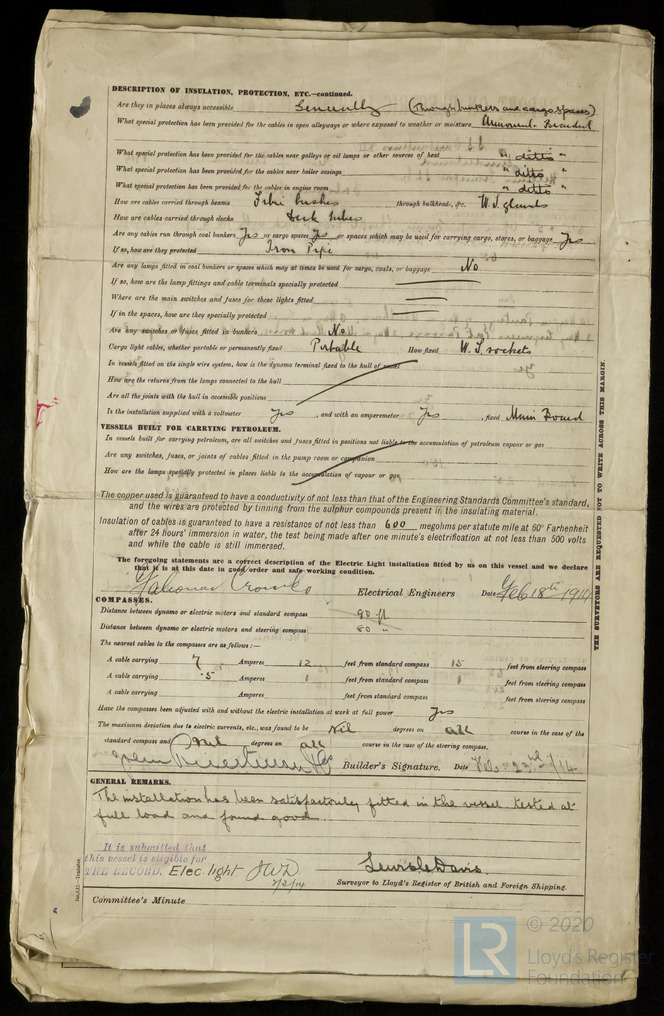 DESCRIPTION OF INSULATION, PROTECTION, ETC.—continued.
Are they in places always accessible Generally (through bunkers and cargo spaces)
What special protection has been provided for the cables in open alleyways or where exposed to weather or moisture Armoured & Braided
What special protection has been provided for the cables near galleys or oil lamps or other sources of heat " ditto "
What special protection has been provided for the cables near boiler casings " ditto "
What special protection has been provided for the cables in engine room " ditto "
How are cables carried through beams Fibre bushes through bulkheads, &c. W.T. glands
How are cables carried through decks Deck tubes
Are any cables run through coal bunkers Yes or cargo spaces Yes or spaces which may be used for carrying cargo, stores, or baggage Yes
If so, how are they protected Iron Pipe
Are any lamps fitted in coal bunkers or spaces which may at times be used for cargo, coals, or baggage No
If so, how are the lamp fittings and cable terminals specially protected
Where are the main switches and fuses for these lights fitted
If in the spaces, how are they specially protected
Are any switches or fuses fitted in bunkers No
Cargo light cables, whether portable or permanently fixed Portable How fixed W.T. sockets
In vessels fitted on the single wire system, how is the dynamo terminal fixed to the hull of vessel
How are the returns from the lamps connected to the hull
Are all the joints with the hull in accessible positions
Is the installation supplied with a voltmeter Yes , and with an amperemeter Yes , fixed Main Board
VESSELS BUILT FOR CARRYING PETROLEUM.
In vessels built for carrying petroleum, are all switches and fuses fitted in positions not liable to the accumulation of petroleum vapour or gas
Are any switches, fuses, or joints of cables fitted in the pump room or companion
How are the lamps specially protected in places liable to the accumulation of vapour or gas
The copper used is guaranteed to have a conductivity of not less than that of the Engineering Standards Committee's standard,
and the wires are protected by tinning from the sulphur compounds present in the insulating material.
Insulation of cables is guaranteed to have a resistance of not less than 600 megohms per statute mile at 60° Farhenheit
after 24 hours' immersion in water, the test being made after one minute's electrification at not less than 500 volts
and while the cable is still immersed.
The foregoing statements are a correct description of the Electric Light installation fitted by us on this vessel and we declare
that it is at this date in good order and safe working condition.
Electrical Engineers Date Feb 18th 1914
COMPASSES.
Distance between dynamo or electric motors and standard compass 90 ft
Distance between dynamo or electric motors and steering compass 80 "
The nearest cables to the compasses are as follows:—
A cable carrying 7 Amperes 12 feet from standard compass 15 feet from steering compass
A cable carrying .5 Amperes 1 feet from standard compass 1 feet from steering compass
A cable carrying Amperes feet from standard compass feet from steering compass
Have the compasses been adjusted with and without the electric installation at work at full power Yes
The maximum deviation due to electric currents, etc., was found to be Nil degrees on all course in the case of the
standard compass and Nil degrees on all course in the case of the steering compass.
Builder's Signature. Date Feb 23rd /14
GENERAL REMARKS.
The installation has been satisfactorily fitted in the vessel tested at
full load and found good.
It is submitted that
this vessel is eligible for
THE RECORD. Elec light JWD
7/3/14
Lewis Davis
Surveyor to Lloyd's Register of British and Foreign Shipping.
Committee's Minute
THE SURVEYORS ARE REQUESTED NOT TO WRITE ACROSS THIS MARGIN.
LR
© 2020
Lloyd's Register
Foundation